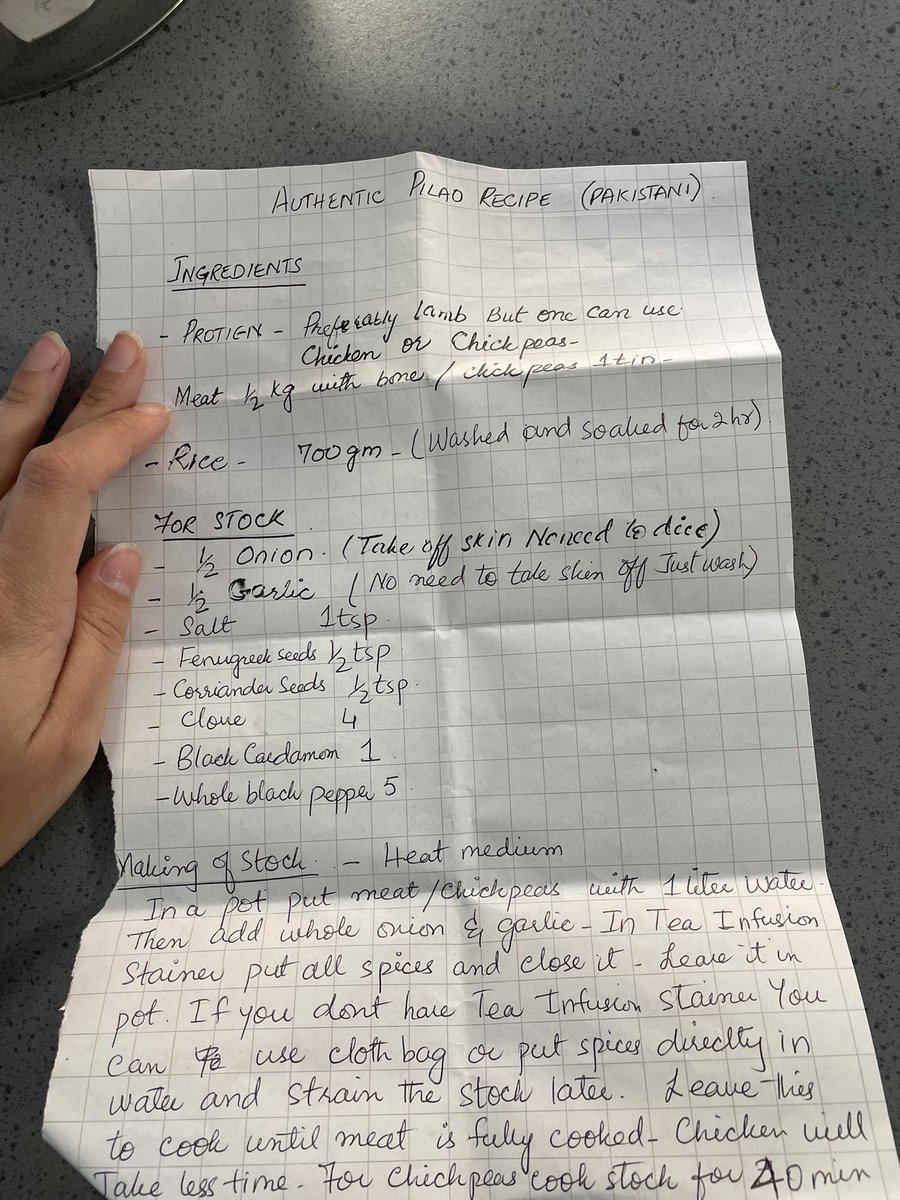 AUTHENTIC PILAO RECIPE (PAKISTANI)
INGREDIENTS
- PROTIEN - Preferably lamb But one can use
Chicken or Chickpeas-
Meat 1/2 kg with bone / chickpeas 1 tin -
- Rice - 700gm - (Washed and soaked for 2hr)
FOR STOCK
- 1/2 Onion. (Take off skin No need to dice)
- 1/2 Garlic (No need to take skin off Just wash)
- Salt 1tsp.
- Fenugreek seeds 1/2 tsp
- Corriander Seeds 1/2 tsp.
- Clove 4
- Black Cardamom 1
- Whole black pepper 5
Making of Stock. - Heat medium
In a pot put meat/chickpeas with 1 liter water.
Then add whole onion & garlic - In Tea Infusion
Stainer put all spices and close it - Leave it in
pot. If you dont have Tea Infusion stainer You
can use cloth bag or put spices directly in
water and strain the stock later. Leave this
to cook until meat is fully cooked - Chicken will
Take less time - For Chickpeas cook stock for 20 min